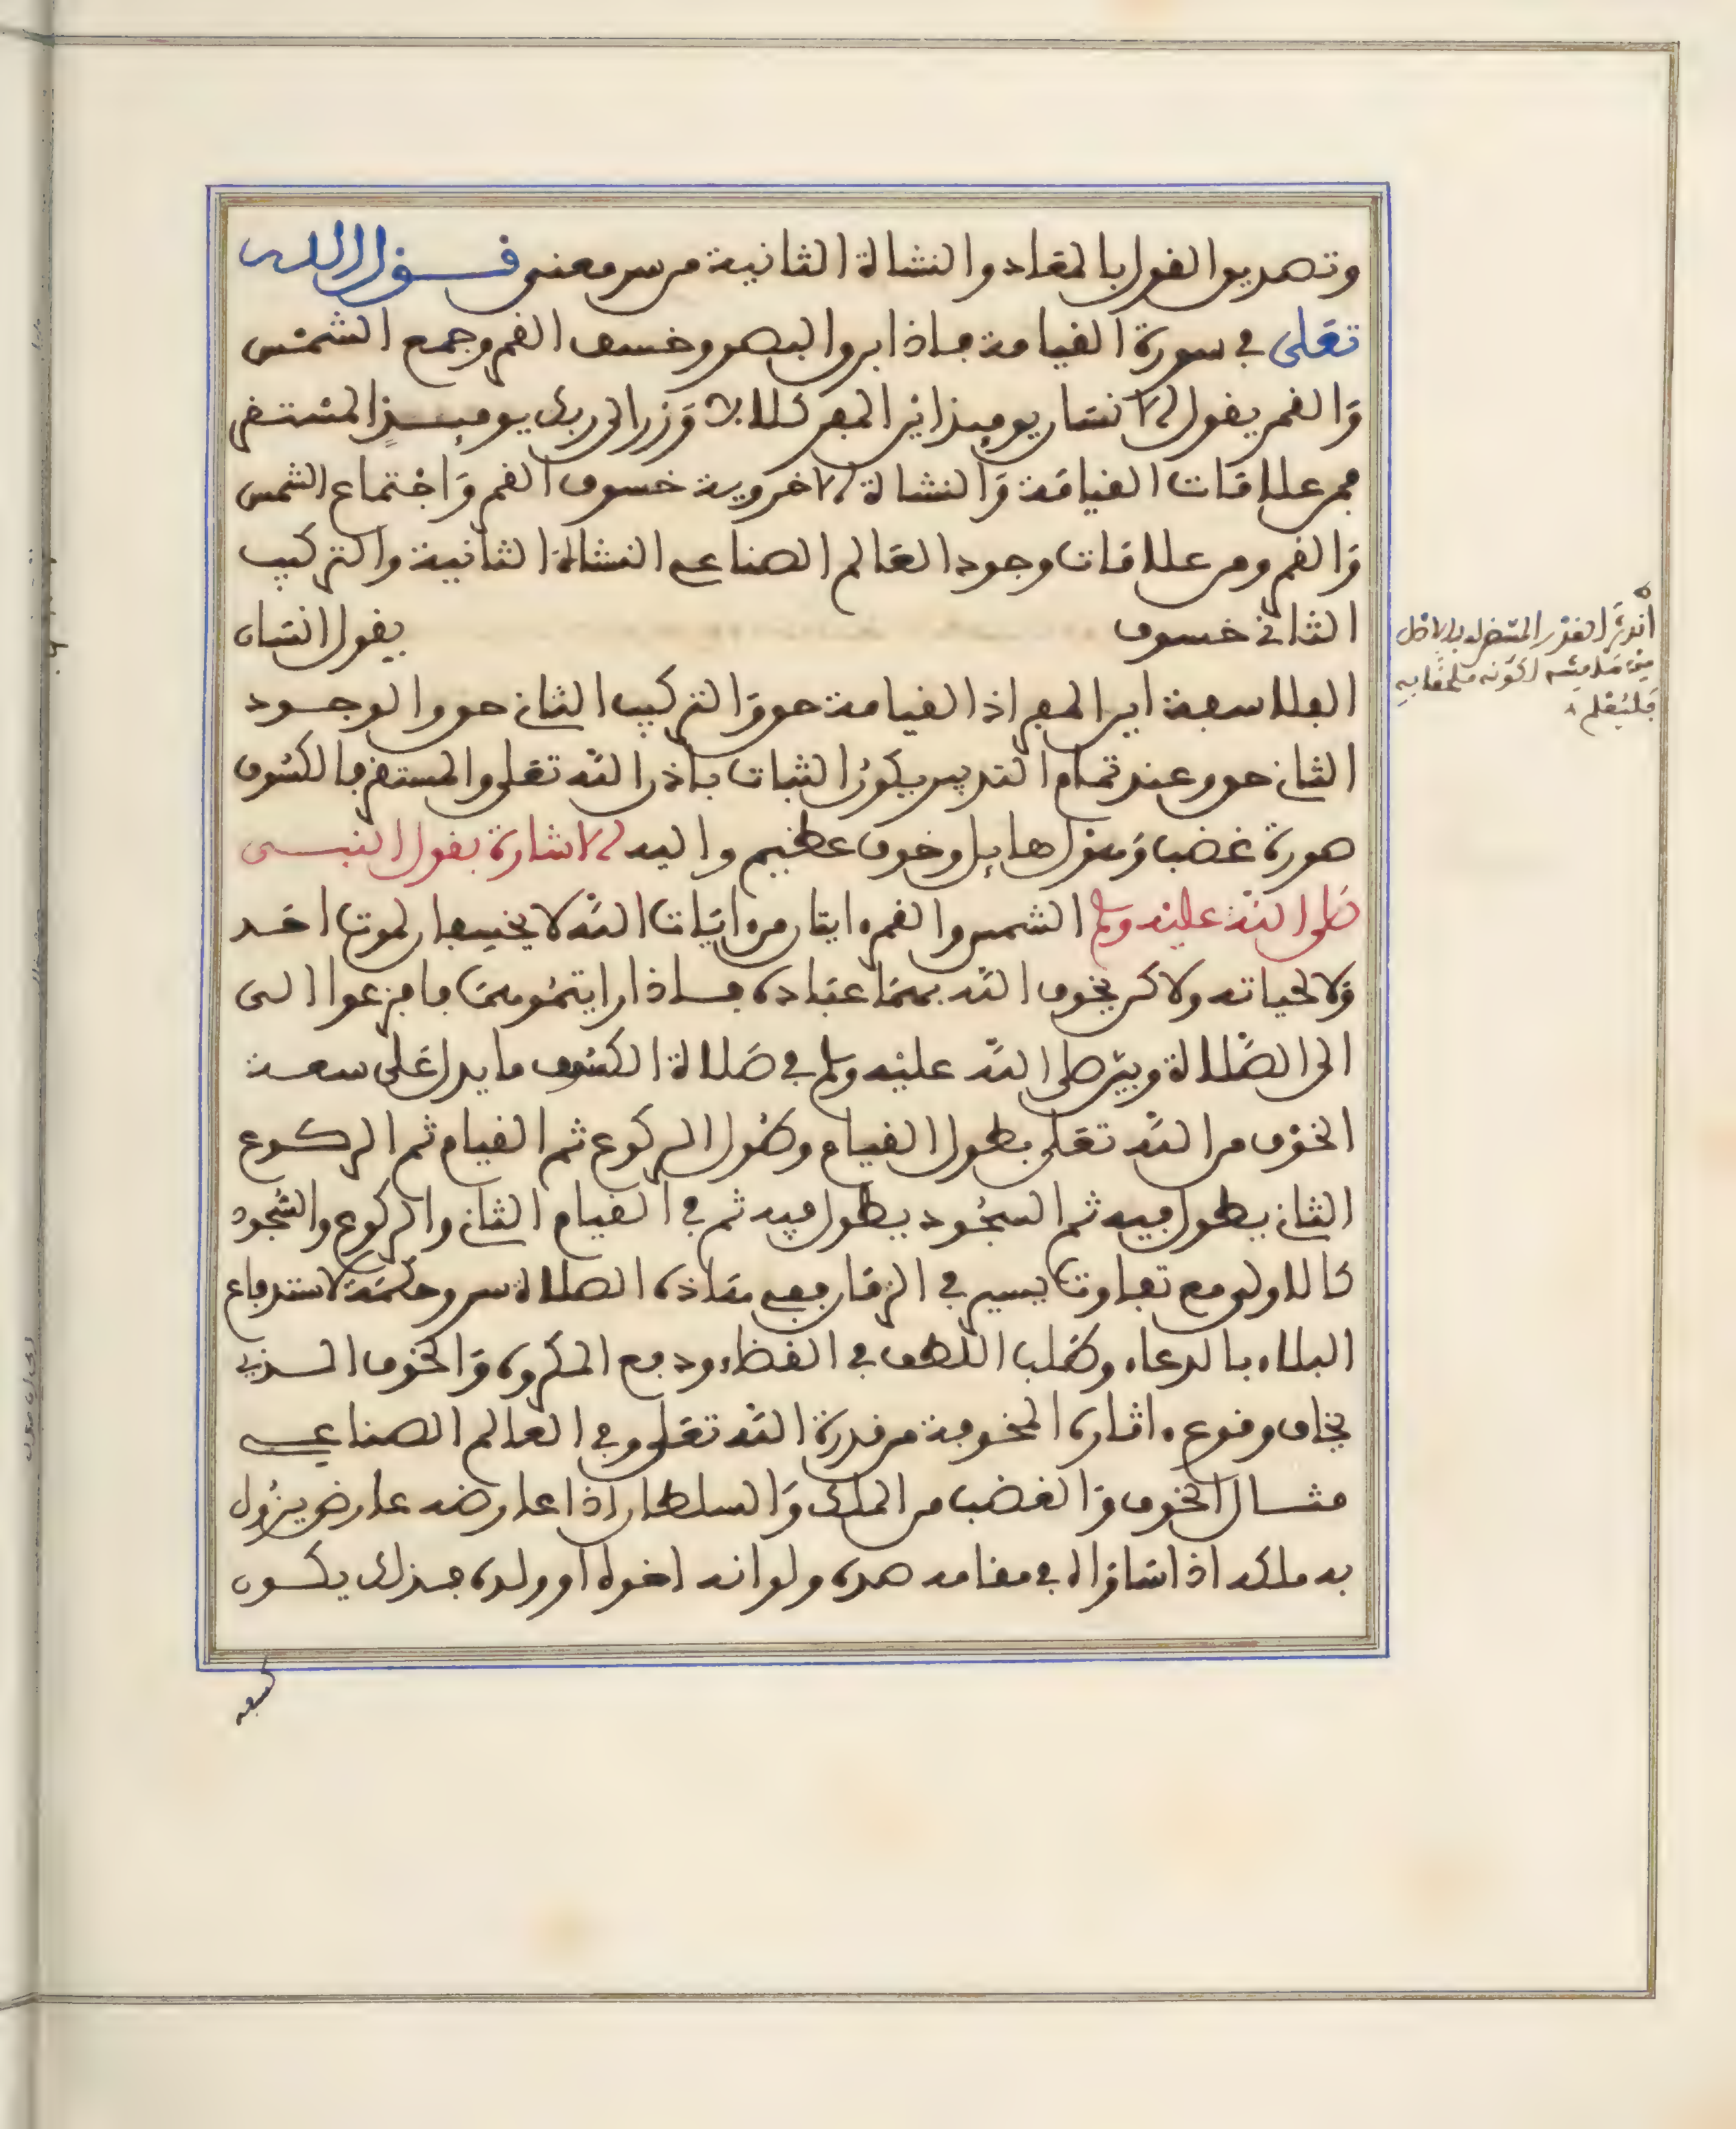 وتصديق القول بالمعاد والنشاة الثانية من سر معنى قول الله
تعلى في سورة القيامة فاذا برق البصر وخسف القمر وجمع الشمس
والقمر يقول الانسان يوميذ اين المفر كلا لا وزر الى ربك يوميذ المستقر
فمن علامات القيامة والنشاة الاخروية خسوف القمر واجتماع الشمس
والقمر ومن علامات وجود العالم الصناعي النشاة الثانية والتركيب
الثاني خسوف يقول انسان
الفلاسفة اين المفر اذ القيامة حق والتركيب الثاني حق والوجود
الثاني حق وعند تمام التدبير يكون الثبات باذن الله تعلى والمستقر فالكسوف
صورة غضب ومنزلها هول وخوف عظيم واليه الاشارة بقول النبي
صلى الله عليه وسلم الشمس والقمر ايتان من ايات الله لا يخسفان لموت احد
ولا لحياته ولاكن يخوف الله بهما عباده فاذا رايتموهما فافزعوا الى
الى الصلاة وبين صلى الله عليه وسلم في صلاة الكسوف ما يدل على سعة
الخوف من الله تعلى بطول القيام وطول الركوع ثم القيام ثم الركوع
الثاني يطول فيه ثم السجود يطول فيه ثم في القيام الثاني والركوع والسجود
كالاولى مع تفاوت يسير في الزمان ففي هاذه الصلاة سر وحكمة لاستدفاع
البلاء بالدعاء وطلب اللطف في القضاء ودفع المكروه والخوف الذي
يخاف وقوعه اثاره المخوفة من قدرة الله تعلى وفي العالم الصناعي
مثال الخوف والغضب من الملك والسلطان اذا عارضه عارض يزول
به ملكه اذا شاز اله في مقامه ضده ولو انه اخوه او ولده فبذلك يكون
انه من القدر المتصل بالاصل
مبيضا لكونه ملحقا به
فليعلم
كسفه